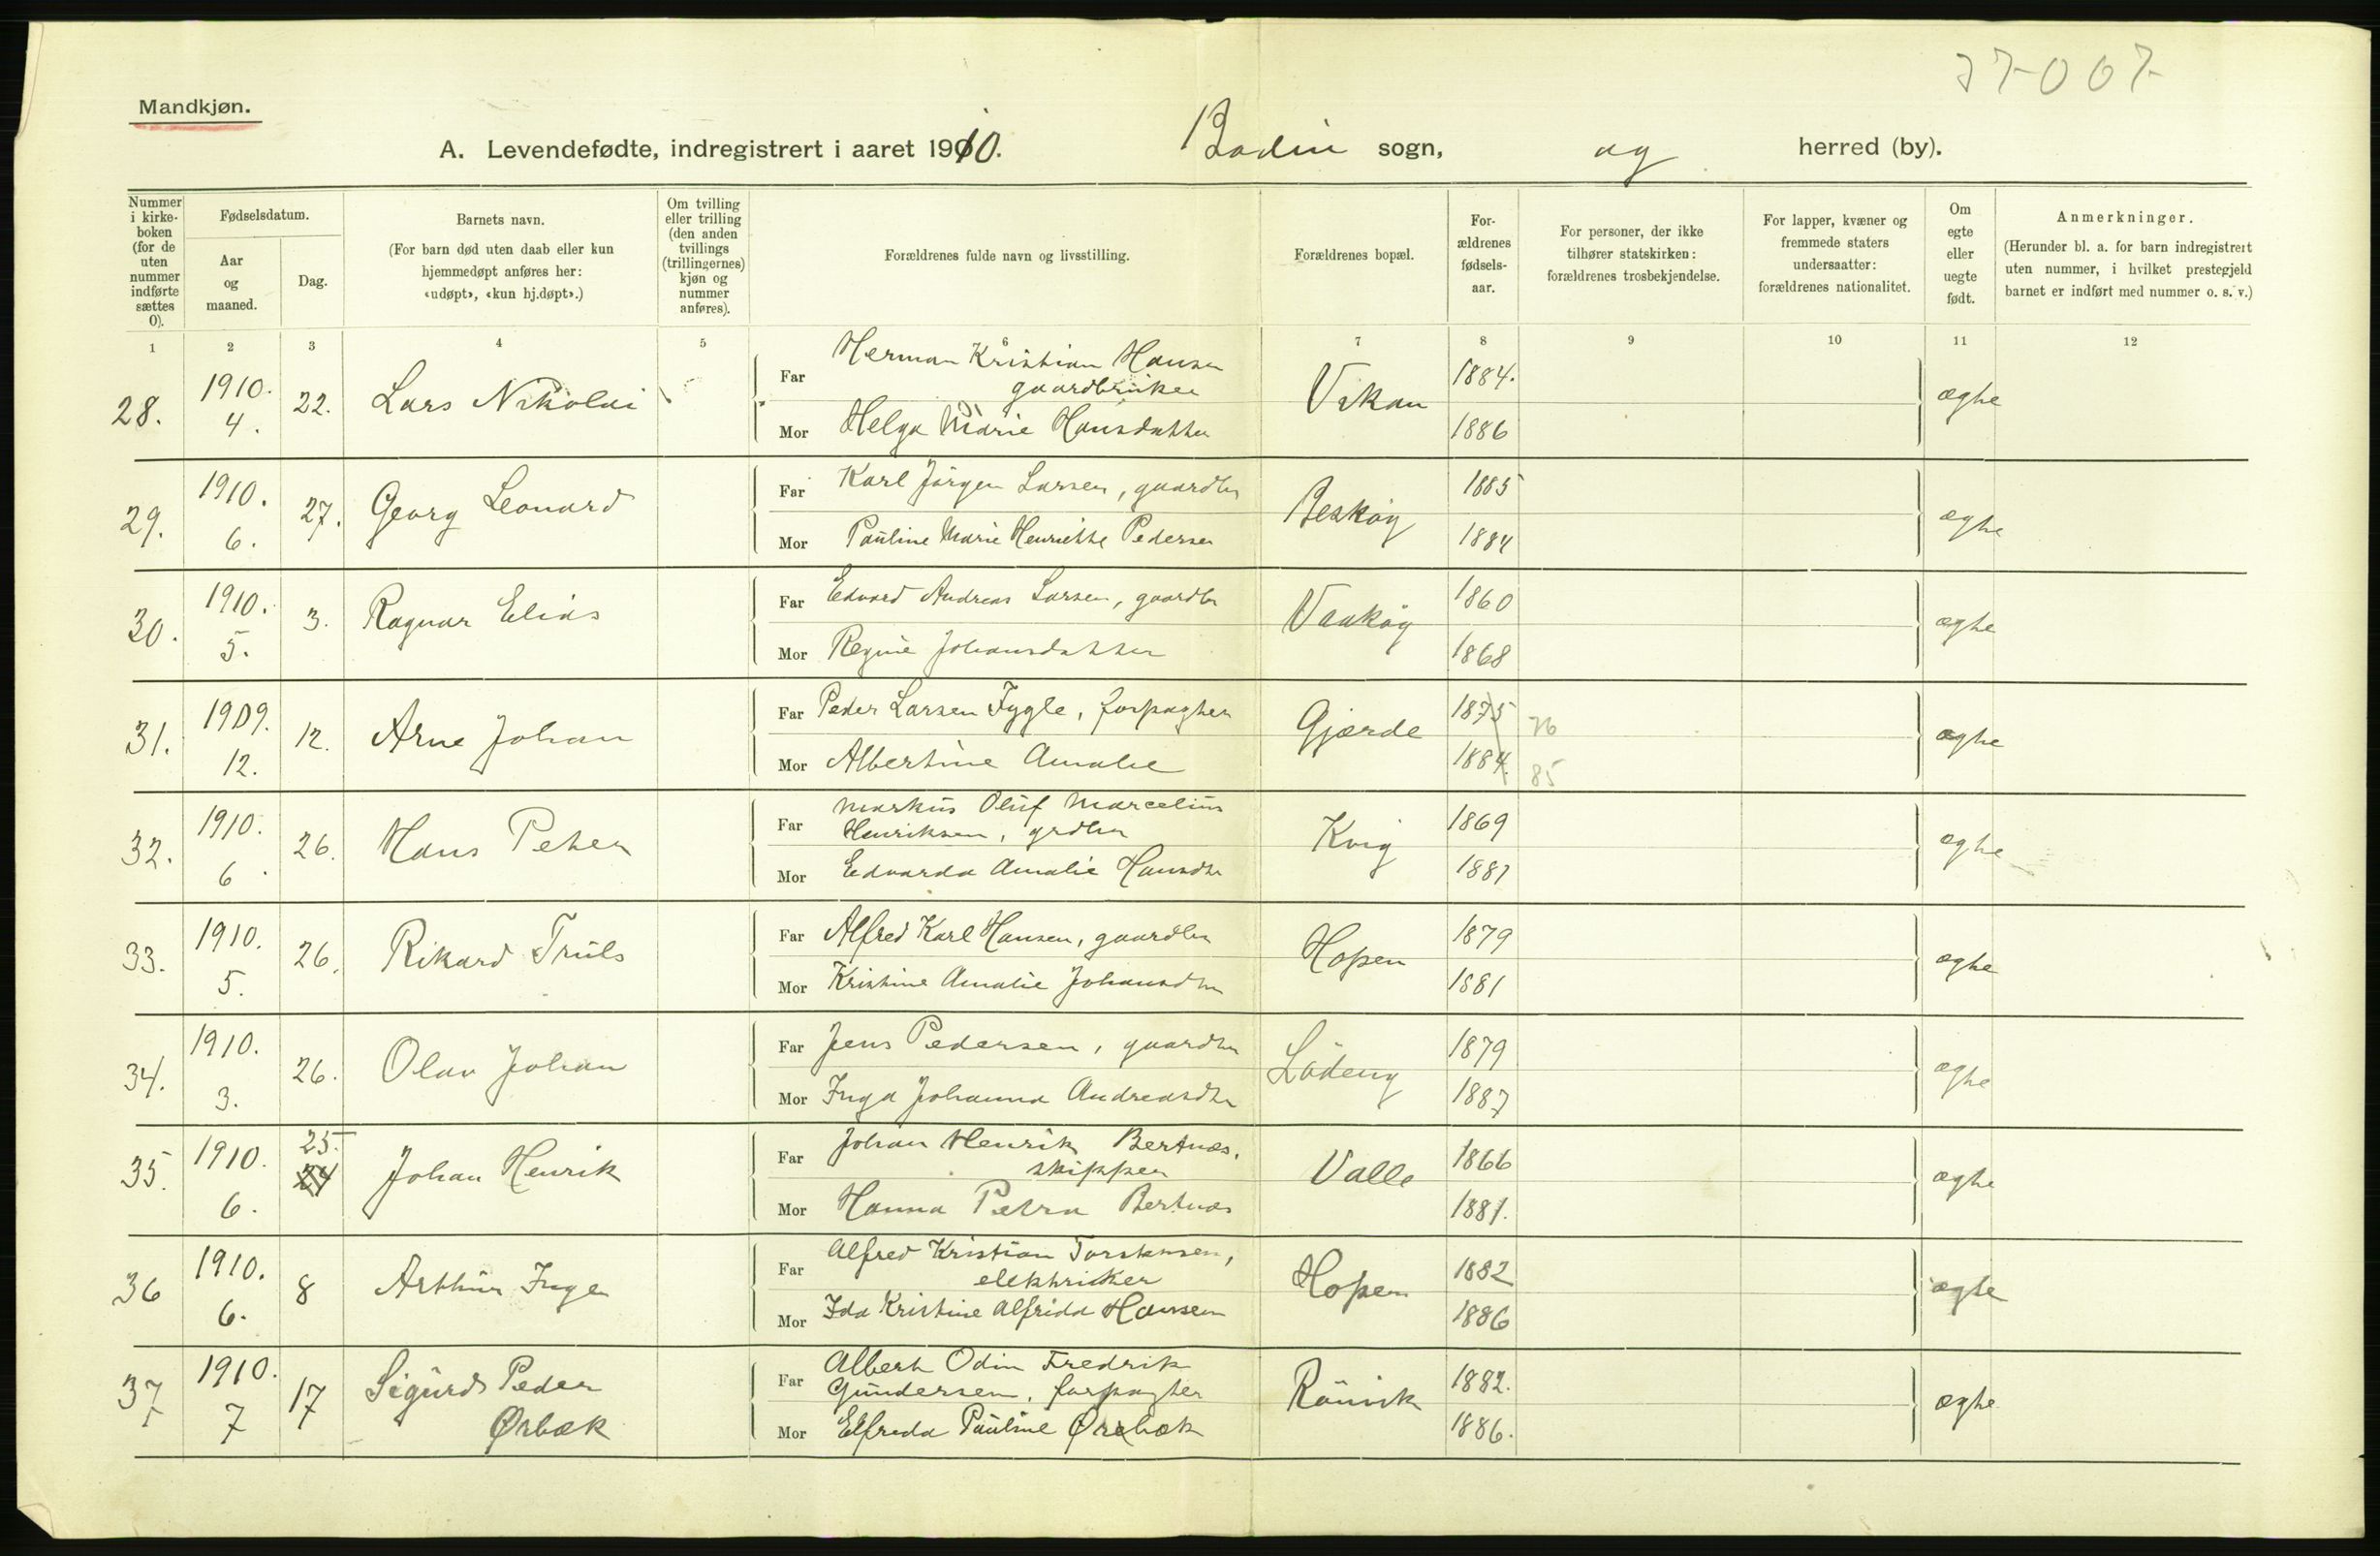 37-007
Mandkjøn.
A. Levendefødte, indregistrert i aaret 1910. Bodin sogn, og herred (by).
Nummer i kirke-boken (for de uten nummer indførte sættes 0).
Fødselsdatum.
Aar og maaned.
Dag.
Barnets navn.
(For barn død uten daab eller kun hjemmedøpt anføres her: «udøpt», «kun hj.døpt».)
Om tvilling eller trilling (den anden tvillings (trillingernes) kjøn og nummer anføres).
Forældrenes fulde navn og livsstilling.
Forældrenes bopæl.
For-ældrenes fødsels-aar.
For personer, der ikke tilhører statskirken: forældrenes trosbekjendelse.
For lapper, kvæner og fremmede staters undersaatter: forældrenes nationalitet.
Om egte eller uegte født.
Anmerkninger.
(Herunder bl. a. for barn indregistrert uten nummer, i hvilket prestegjeld barnet er indført med nummer o. s. v.)
1 2 3 4 5 6 7 8 9 10 11 12
28. 1910. 4. 22. Lars Nikolai
Far Herman Kristian Hansen
gaardbruker Vikan 1884. ægte
Mor Helga Marie Hansdatter 1886
29. 1910. 6. 27. Georg Leonard
Far Karl Jörgen Larsen, gaardbr 1885 ægte
Mor Pauline Marie Henriette Pedersen 1884
30. 1910. 5. 3. Ragnar Elias
Far Edvard Andreas Larsen, gaardbr 1860 ægte
Mor Regine Johansdatter 1868
31. 1909. 12. 12. Arne Johan
Far Peder Larsen Fygle, forpagter Gjærde 1875 76 ægte
Mor Albertine Amalie 1884. 85
32. 1910. 6. 26. Hans Peter
Far Markus Oluf Marcelius
Henriksen, grdbr Kvig 1869 ægte
Mor Edvarda Amalie Hansdtr 1881
33. 1910. 5. 26. Rikard Truls
Far Alfred Karl Hansen, gaardbr Hopen 1879 ægte
Mor Kristine Amalie Johansdtr 1881
34. 1910. 3. 26. Olav Johan
Far Jens Pedersen, gaardbr Löding 1879 ægte
Mor Inga Johanna Andreasdtr 1887
35. 1910. 6. 25. 24 Johan Henrik
Far Johan Henrik Bertnæs,
skipper Valle 1866 ægte
Mor Hanna Petra Bertnæs 1881.
36 1910. 6. 8 Arthur Inge
Far Alfred Kristian Torstensen,
elektriker Hopen 1882 ægte
Mor Ida Kristine Alfrida Hansen 1886
37 1910. 7 17 Sigurd Peder
Ørbæk
Far Albert Odin Fredrik
Gundersen, forpagter Rönvik 1882. ægte
Mor Elfreda Pauline Ørebæk 1886.